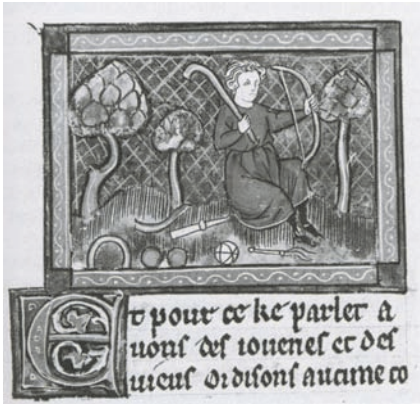 Et pour ce ke parlet a
uons des iouenes et des
uieus Or disons aucune co